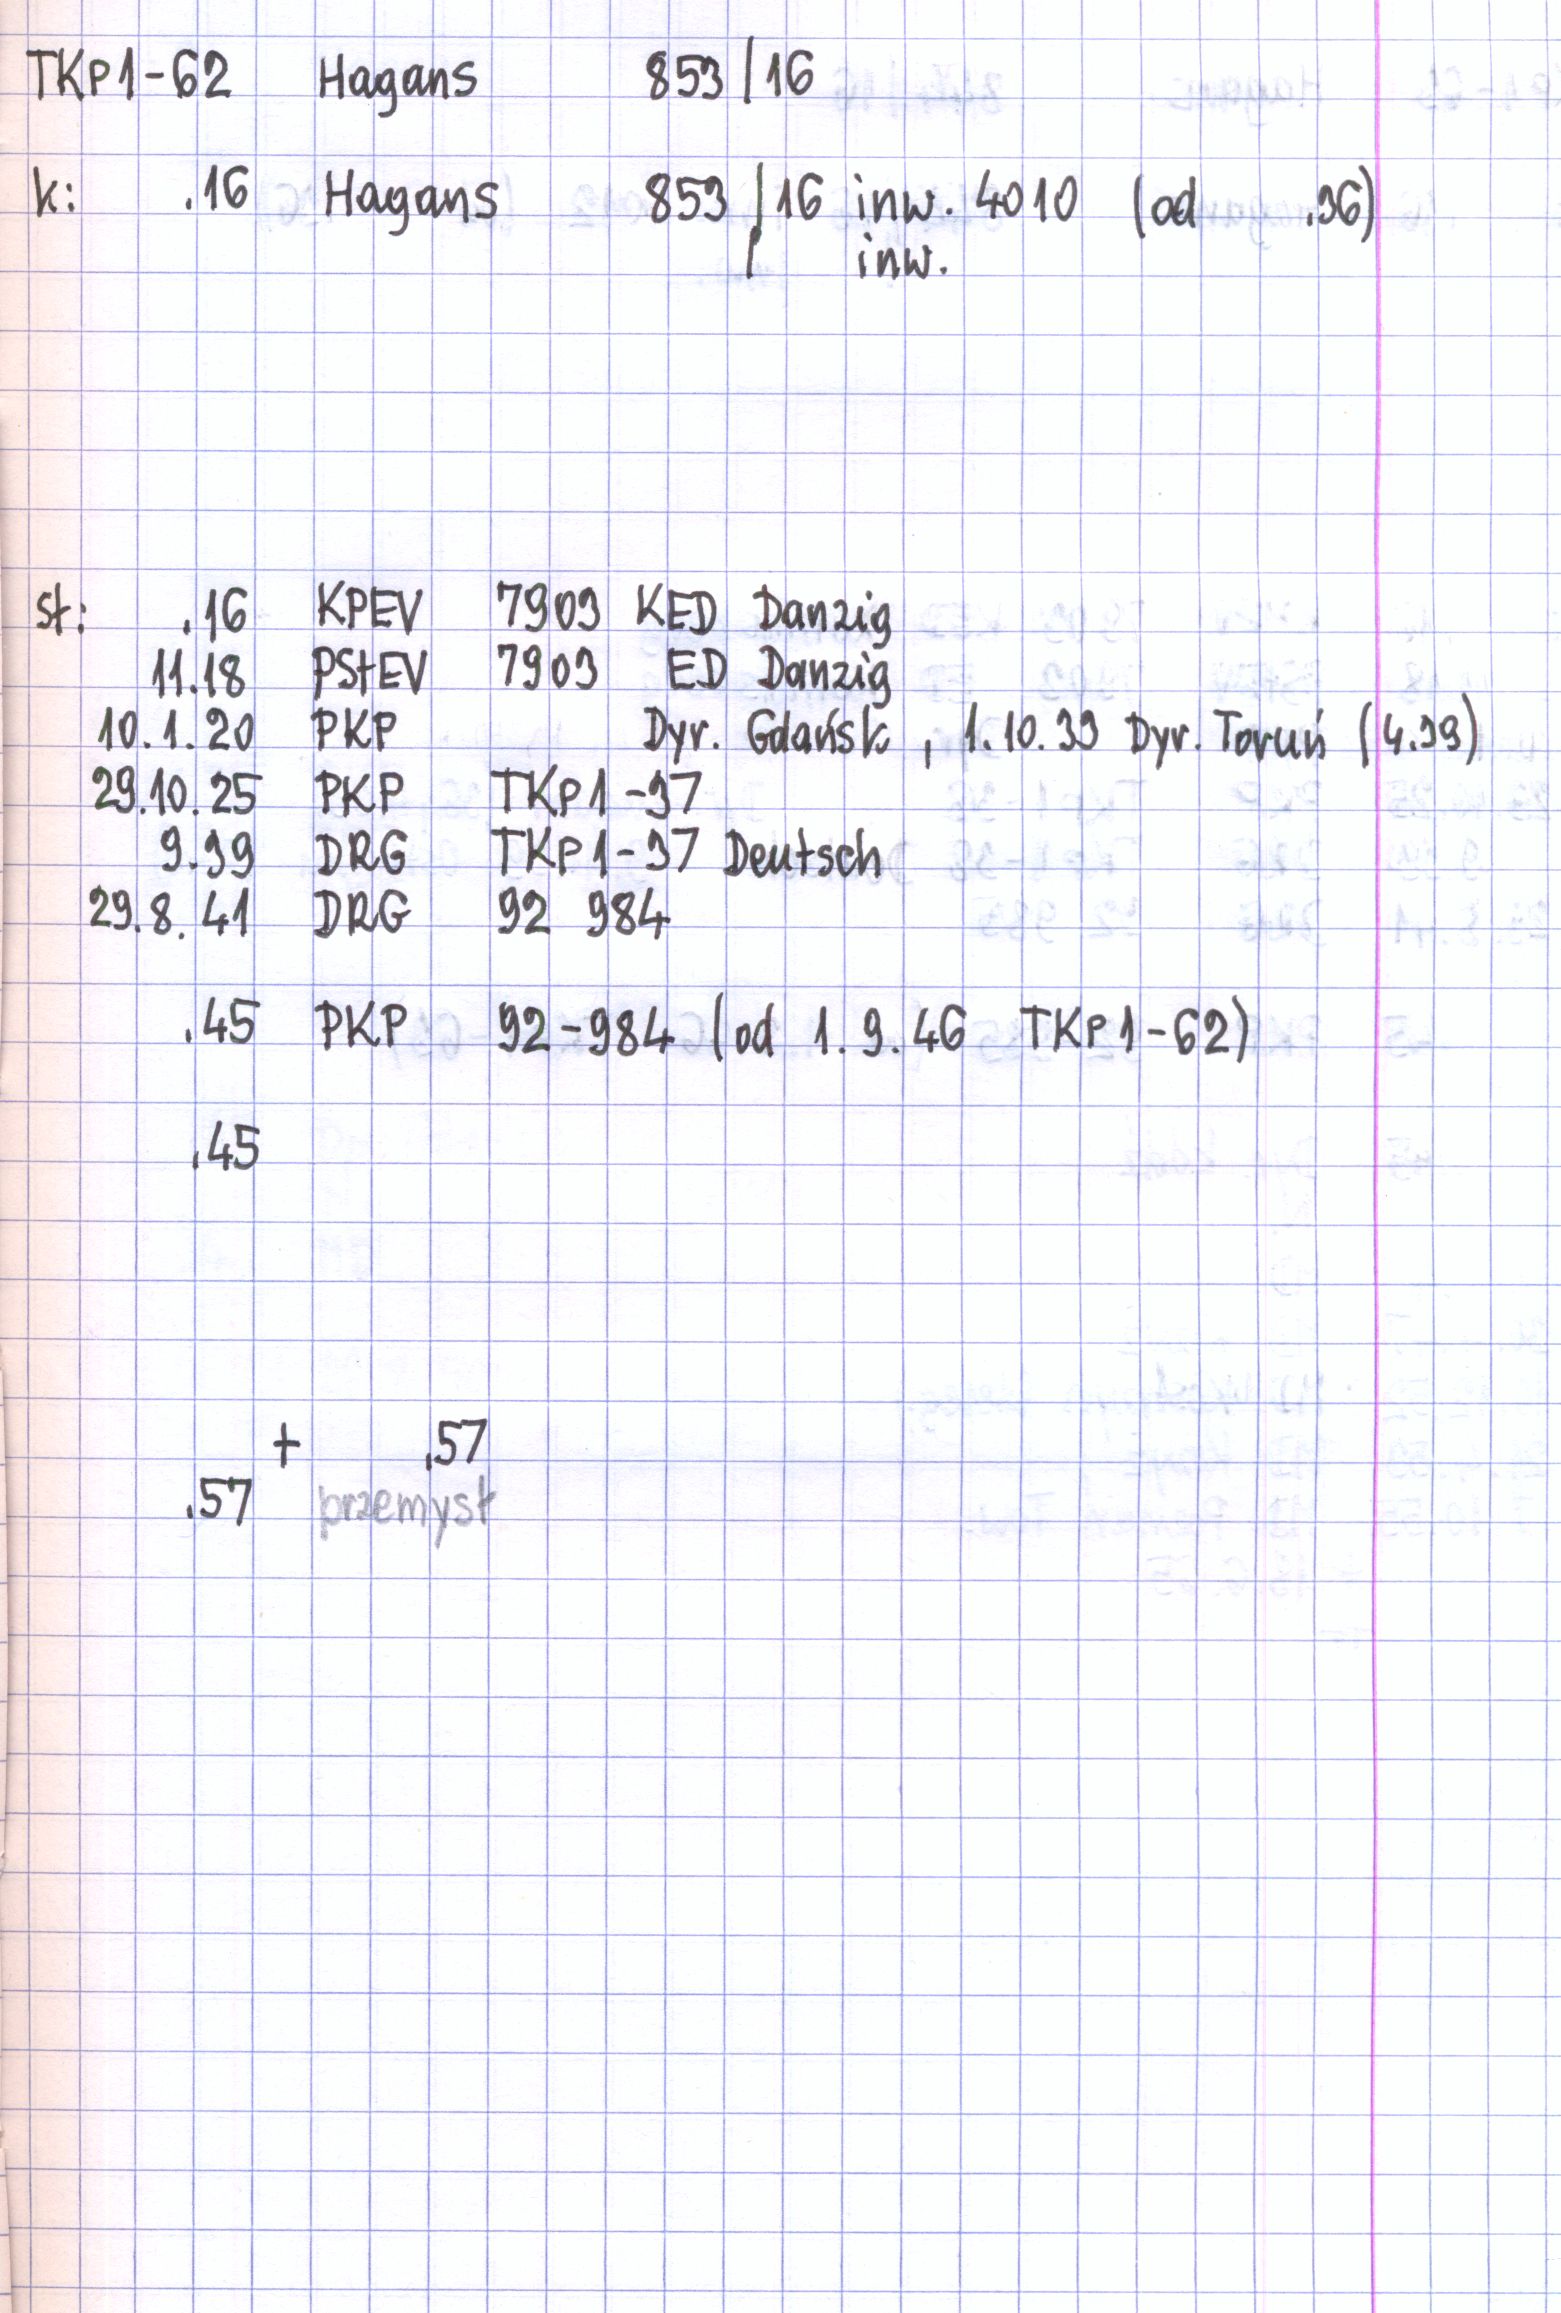 TKp1-62 Hagans 853/16
k: .16 Hagans 853/16 inw. 4010 (od .36)
/ inw.
st: .16 KPEV 7903 KED Danzig
11.18 PStEV 7903 ED Danzig
10.1.20 PKP Dyr. Gdańsk, 1.10.33 Dyr. Toruń (4.39)
29.10.25 PKP TKp1-37
9.39 DRG TKp1-37 Deutsch
29.8.41 DRG 92 984
.45 PKP 92-984 (od 1.9.46 TKp1-62)
.45
+ .57
.57 przemysł